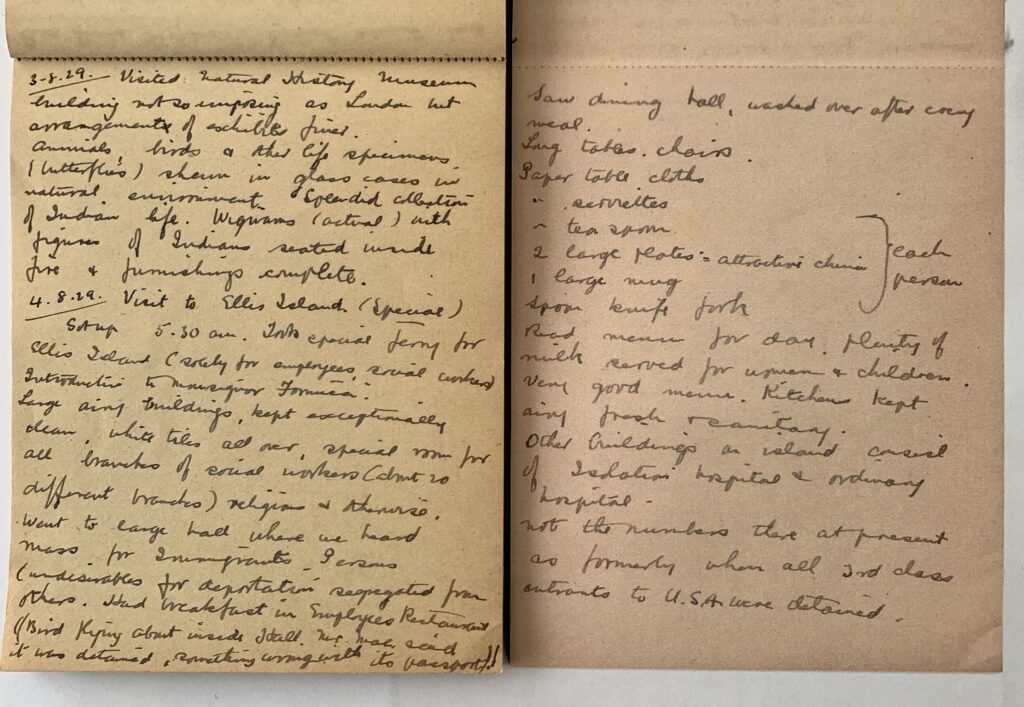 3-8.29. Visited Natural History Museum
building not so imposing as London but
arrangements of exhibits finer.
Animals, birds & other life specimens
(butterflies) shewn in glass cases in
natural environment. Splendid collection
of Indian life. Wigwams (actual) with
figures of Indians seated inside
fire & furnishings complete.
4.8.29. Visit to Ellis Island (Special)
Got up 5.30 am. Took special ferry for
Ellis Island (solely for employees, social workers)
Introduction to Monsignor
Large airy buildings, kept exceptionally
clean, white tiles all over, special room for
all branches of social workers (about 20
different branches) religious & otherwise.
Went to large hall where we heard
mass for Immigrants. Persons
(undesirables for deportation segregated from
others. Had breakfast in Employees Restaurant
(Bird flying about inside Hall. Mr. said
it was detained, something wrong with its passport)!!
Saw dining hall, washed over after every
meal.
Long tables. chairs.
Paper table cloths
" serviettes
" tea spoon
2 large plates = attractive china
1 large mug
each
person
spoon knife fork
Read menu for day. Plenty of
milk served for women & children.
Very good menu. Kitchens kept
airy fresh & sanitary.
Other buildings on island consist
of Isolation hospital & ordinary
hospital -
not the numbers there at present
as formerly when all 3rd class
entrants to U.S.A. were detained.